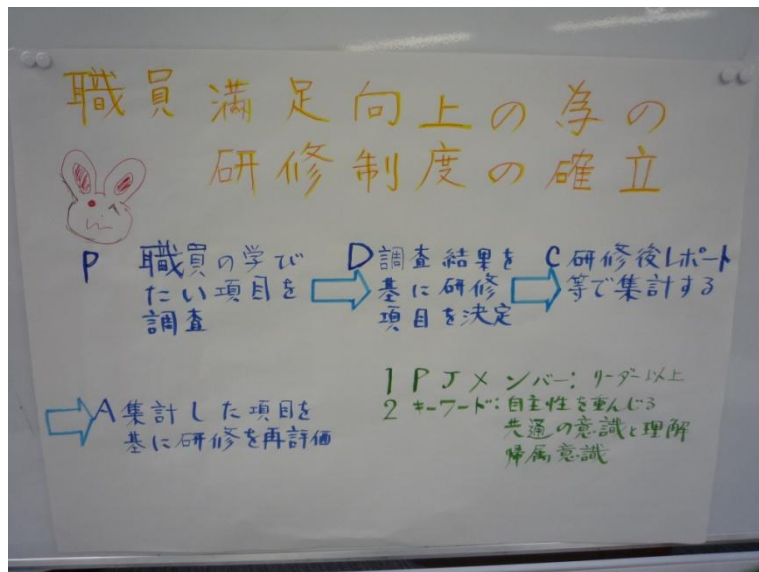 職員満足向上の為の
研修制度の確立
P 職員の学び
たい項目を
調査
D 調査結果を
基に研修
項目を決定
C 研修後レポート
等で集計する
A 集計した項目を
基に研修を再評価
1 PJメンバー：リーダー以上
2 キーワード：自主性を重んじる
共通の意識と理解
帰属意識